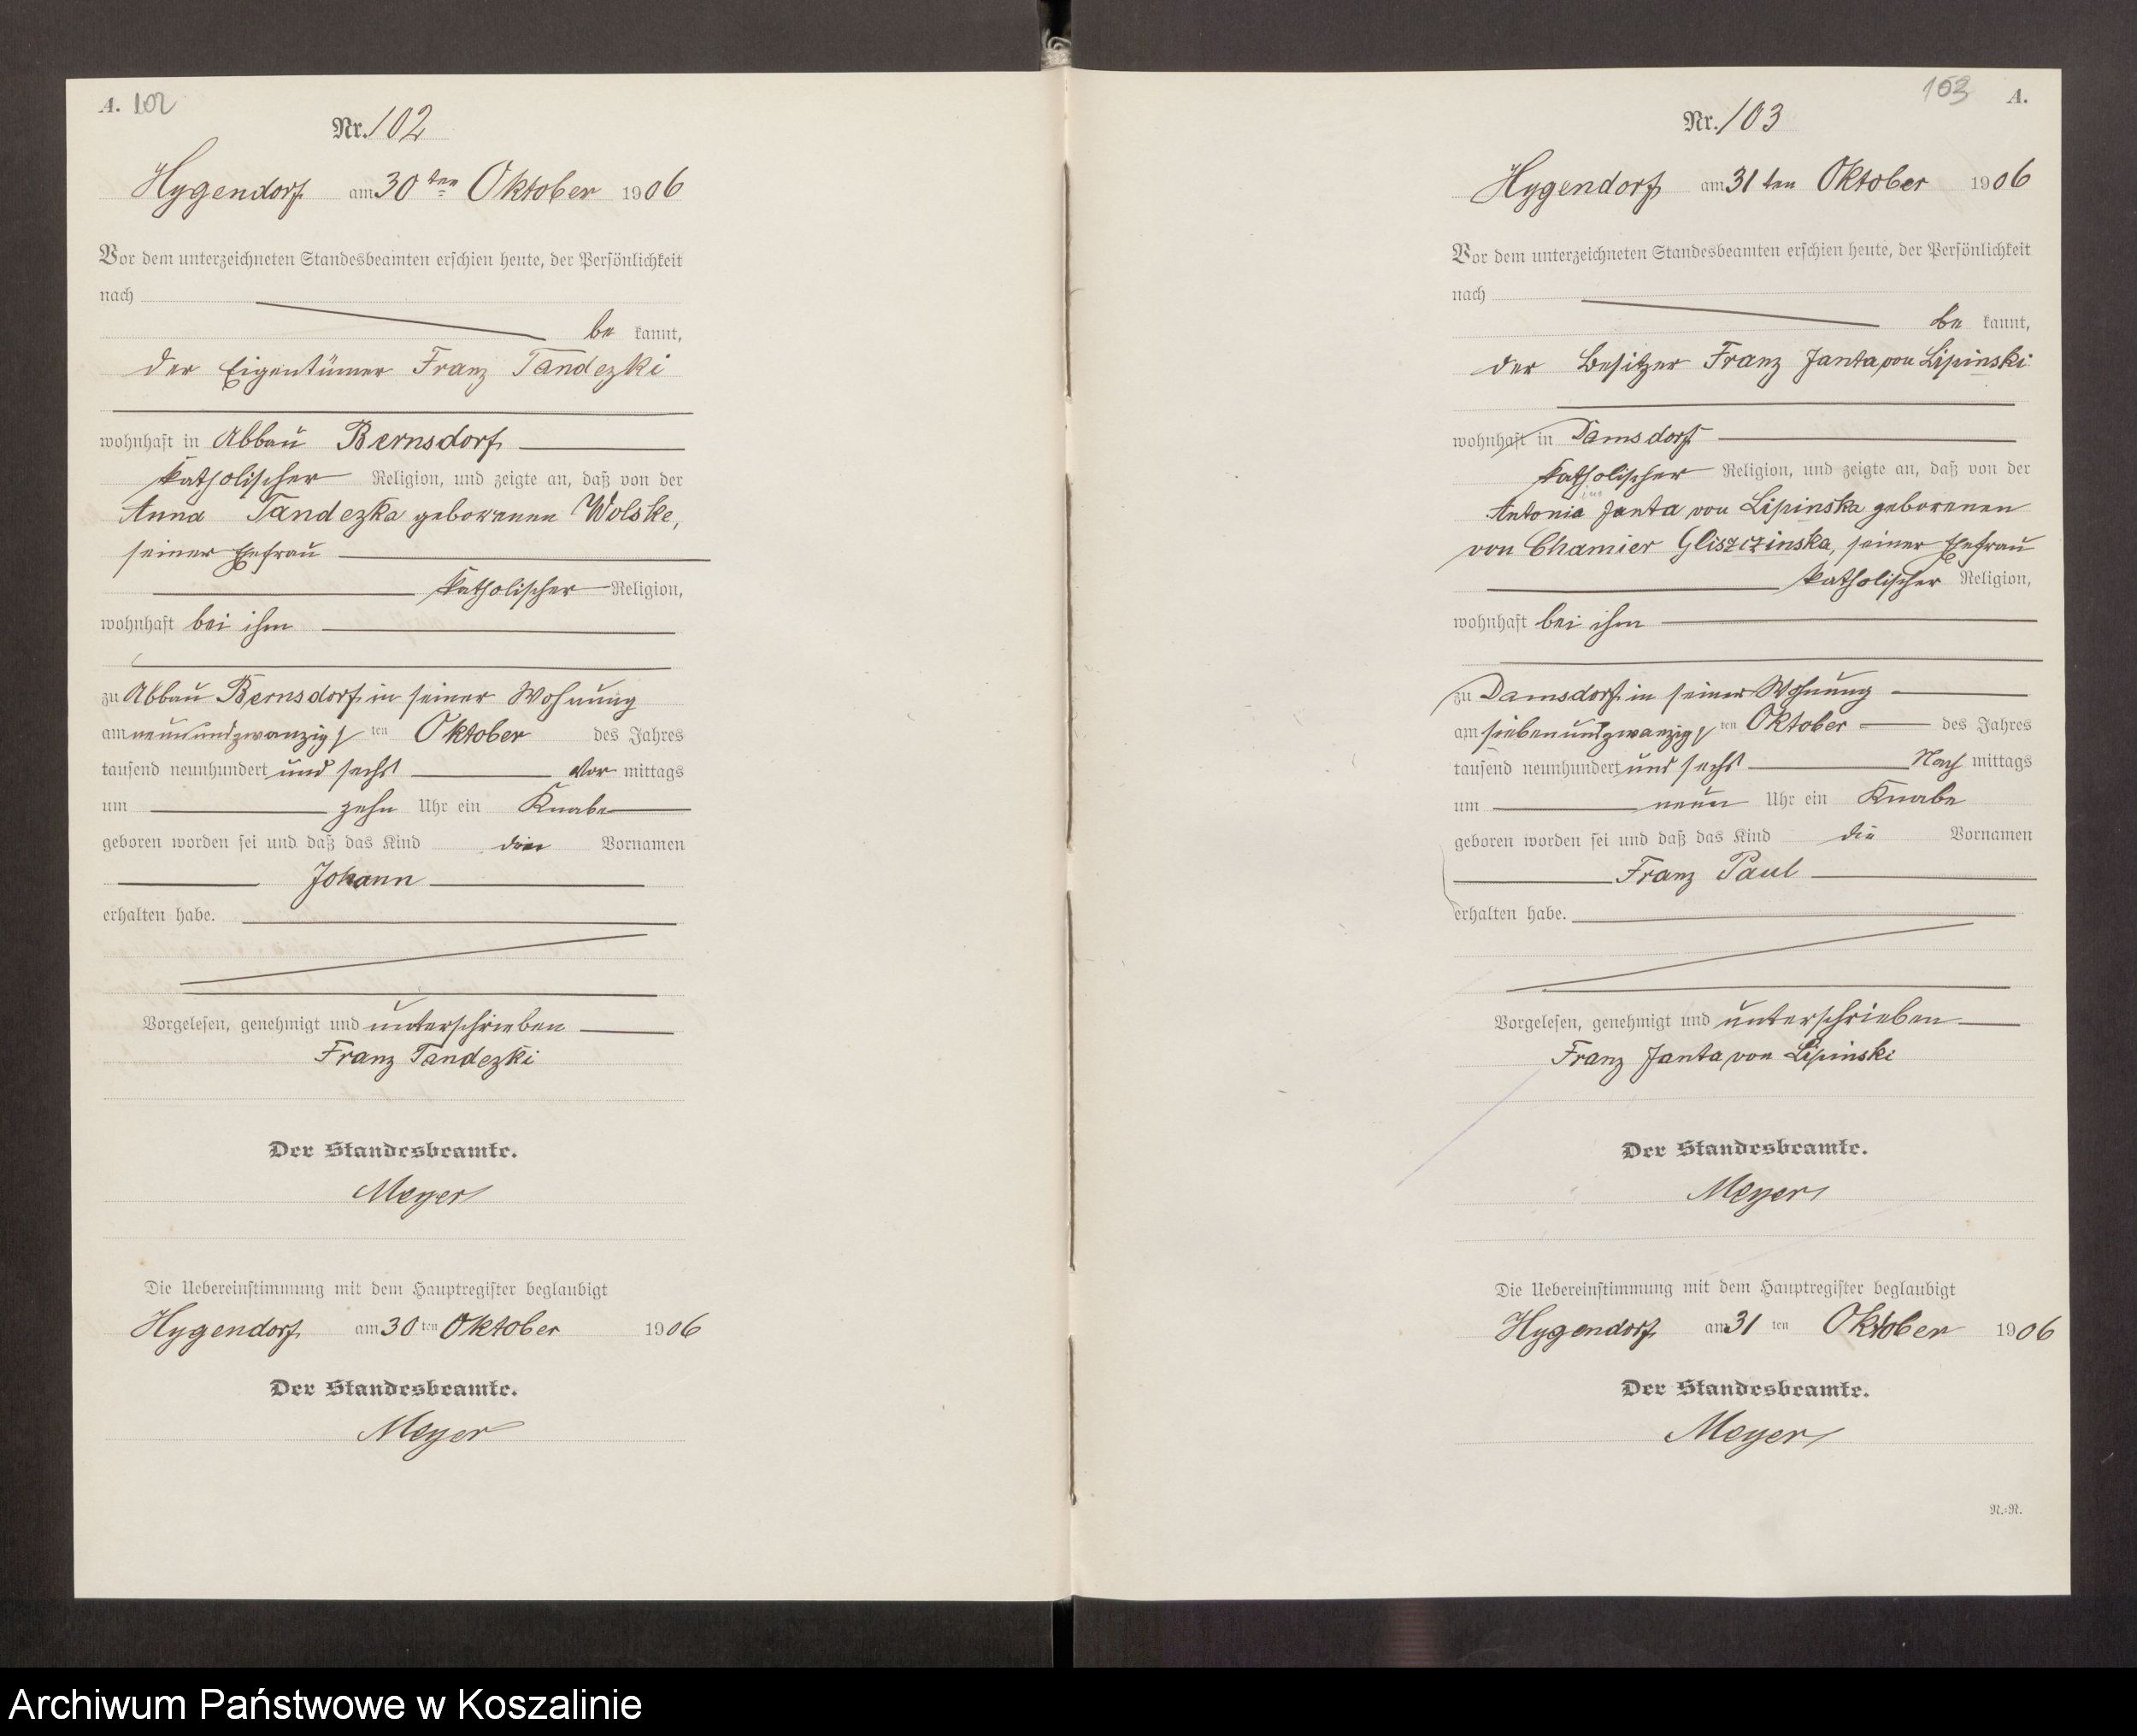 A. 102
Nr. 102
Hygendorf am 30 ten Oktober 1906
Vor dem unterzeichneten Standesbeamten erschien heute, der Persönlichkeit
nach
be kannt,
der Eigentümer Franz Tandezki
wohnhaft in Abbau Bernsdorf
katholischer Religion, und zeigte an, daß von der
Anna Tandezka geborenen Wolske,
seiner Ehefrau
katholischer Religion,
wohnhaft bei ihm
zu Abbau Bernsdorf in seiner Wohnung
am neunundzwanzigsten Oktober des Jahres
tausend neunhundert und sechs Vor mittags
um zehn Uhr ein Knabe
geboren worden sei und daß das Kind den Vornamen
Johann
erhalten habe.
Vorgelesen, genehmigt und unterschrieben
Franz Tandezki
Der Standesbeamte.
Meyer
Die Uebereinstimmung mit dem Hauptregister beglaubigt
Hygendorf am 30 ten Oktober 1906
Der Standesbeamte.
Meyer
103 A.
Nr. 103
Hygendorf am 31 ten Oktober 1906
Vor dem unterzeichneten Standesbeamten erschien heute, der Persönlichkeit
nach
be kannt,
der Besitzer Franz Janta von Lipinski
wohnhaft in Damsdorf
katholischer Religion, und zeigte an, daß von der
Antonie Janta von Lipinska geborenen
von Chamier Gliszczinska, seiner Ehefrau
katholischer Religion,
wohnhaft bei ihm
zu Damsdorf in seiner Wohnung
am siebenundzwanzigsten Oktober des Jahres
tausend neunhundert und sechs Nach mittags
um neun Uhr ein Knabe
geboren worden sei und daß das Kind die Vornamen
Franz Paul
erhalten habe.
Vorgelesen, genehmigt und unterschrieben
Franz Janta von Lipinski
Der Standesbeamte.
Meyer
Die Uebereinstimmung mit dem Hauptregister beglaubigt
Hygendorf am 31 ten Oktober 1906
Der Standesbeamte.
Meyer
N.=N.
Archiwum Państwowe w Koszalinie